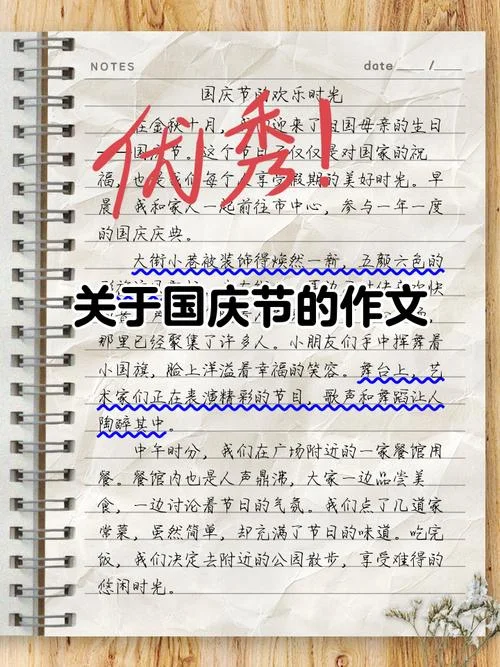 NOTES
date ___ /___
国庆节的欢乐时光
优秀!
在金秋十月,我们迎来了祖国母亲的生日
国庆节。这个节日不仅仅是对国家的祝
福,也是我们每个人享受假期的美好时光。早
晨,我和家人一起前往市中心,参与一年一度
的国庆庆典。
大街小巷被装饰得焕然一新,五颜六色的
关于国庆节的作文
那里已经聚集了许多人。小朋友们手中挥舞着
小国旗,脸上洋溢着幸福的笑容。舞台上,艺
术家们正在表演精彩的节目,歌声和舞蹈让人
陶醉其中。
中午时分,我们在广场附近的一家餐馆用
餐。餐馆内也是人声鼎沸,大家一边品尝美
食,一边讨论着节日的气氛。我们点了几道家
常菜,虽然简单,却充满了节日的味道。吃完
饭,我们决定去附近的公园散步,享受难得的
悠闲时光。